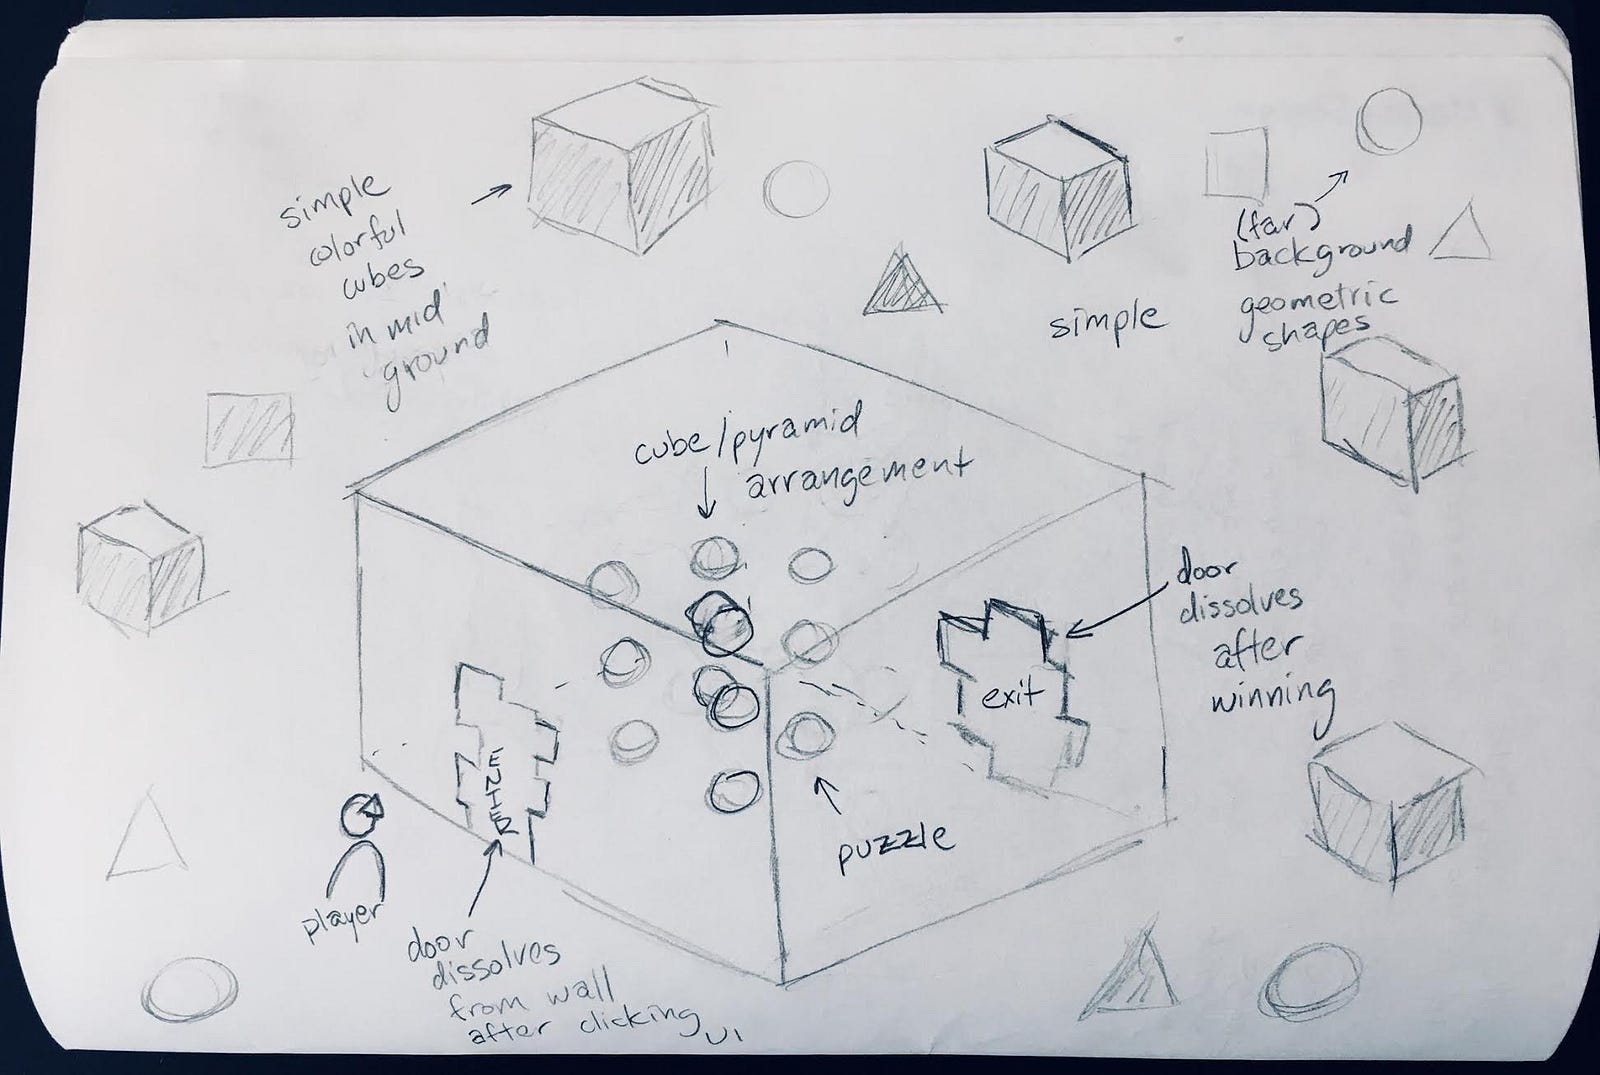 simple
colorful
cubes
in mid
ground
(far)
background
geometric
shapes
simple
cube/pyramid
arrangement
door
dissolves
after
winning
exit
ENTER
puzzle
player
door
dissolves
from wall
after clicking UI